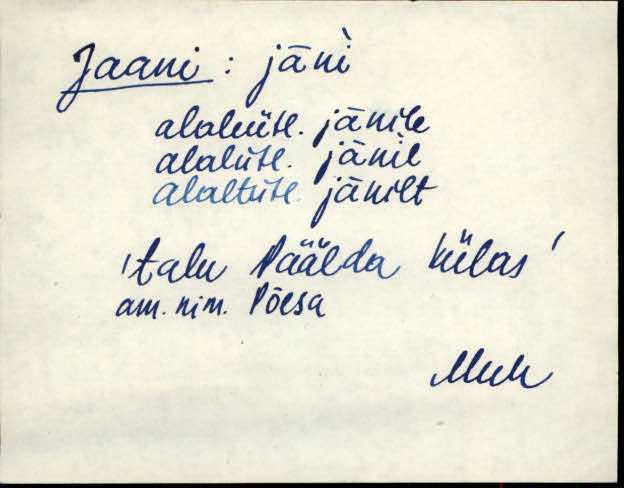 Jaani : jāni
alaleütl. jānile
alalütl. jānil
alaltütl. jānilt
'talu Päälda külas'
am. nim. Põesa
Muh